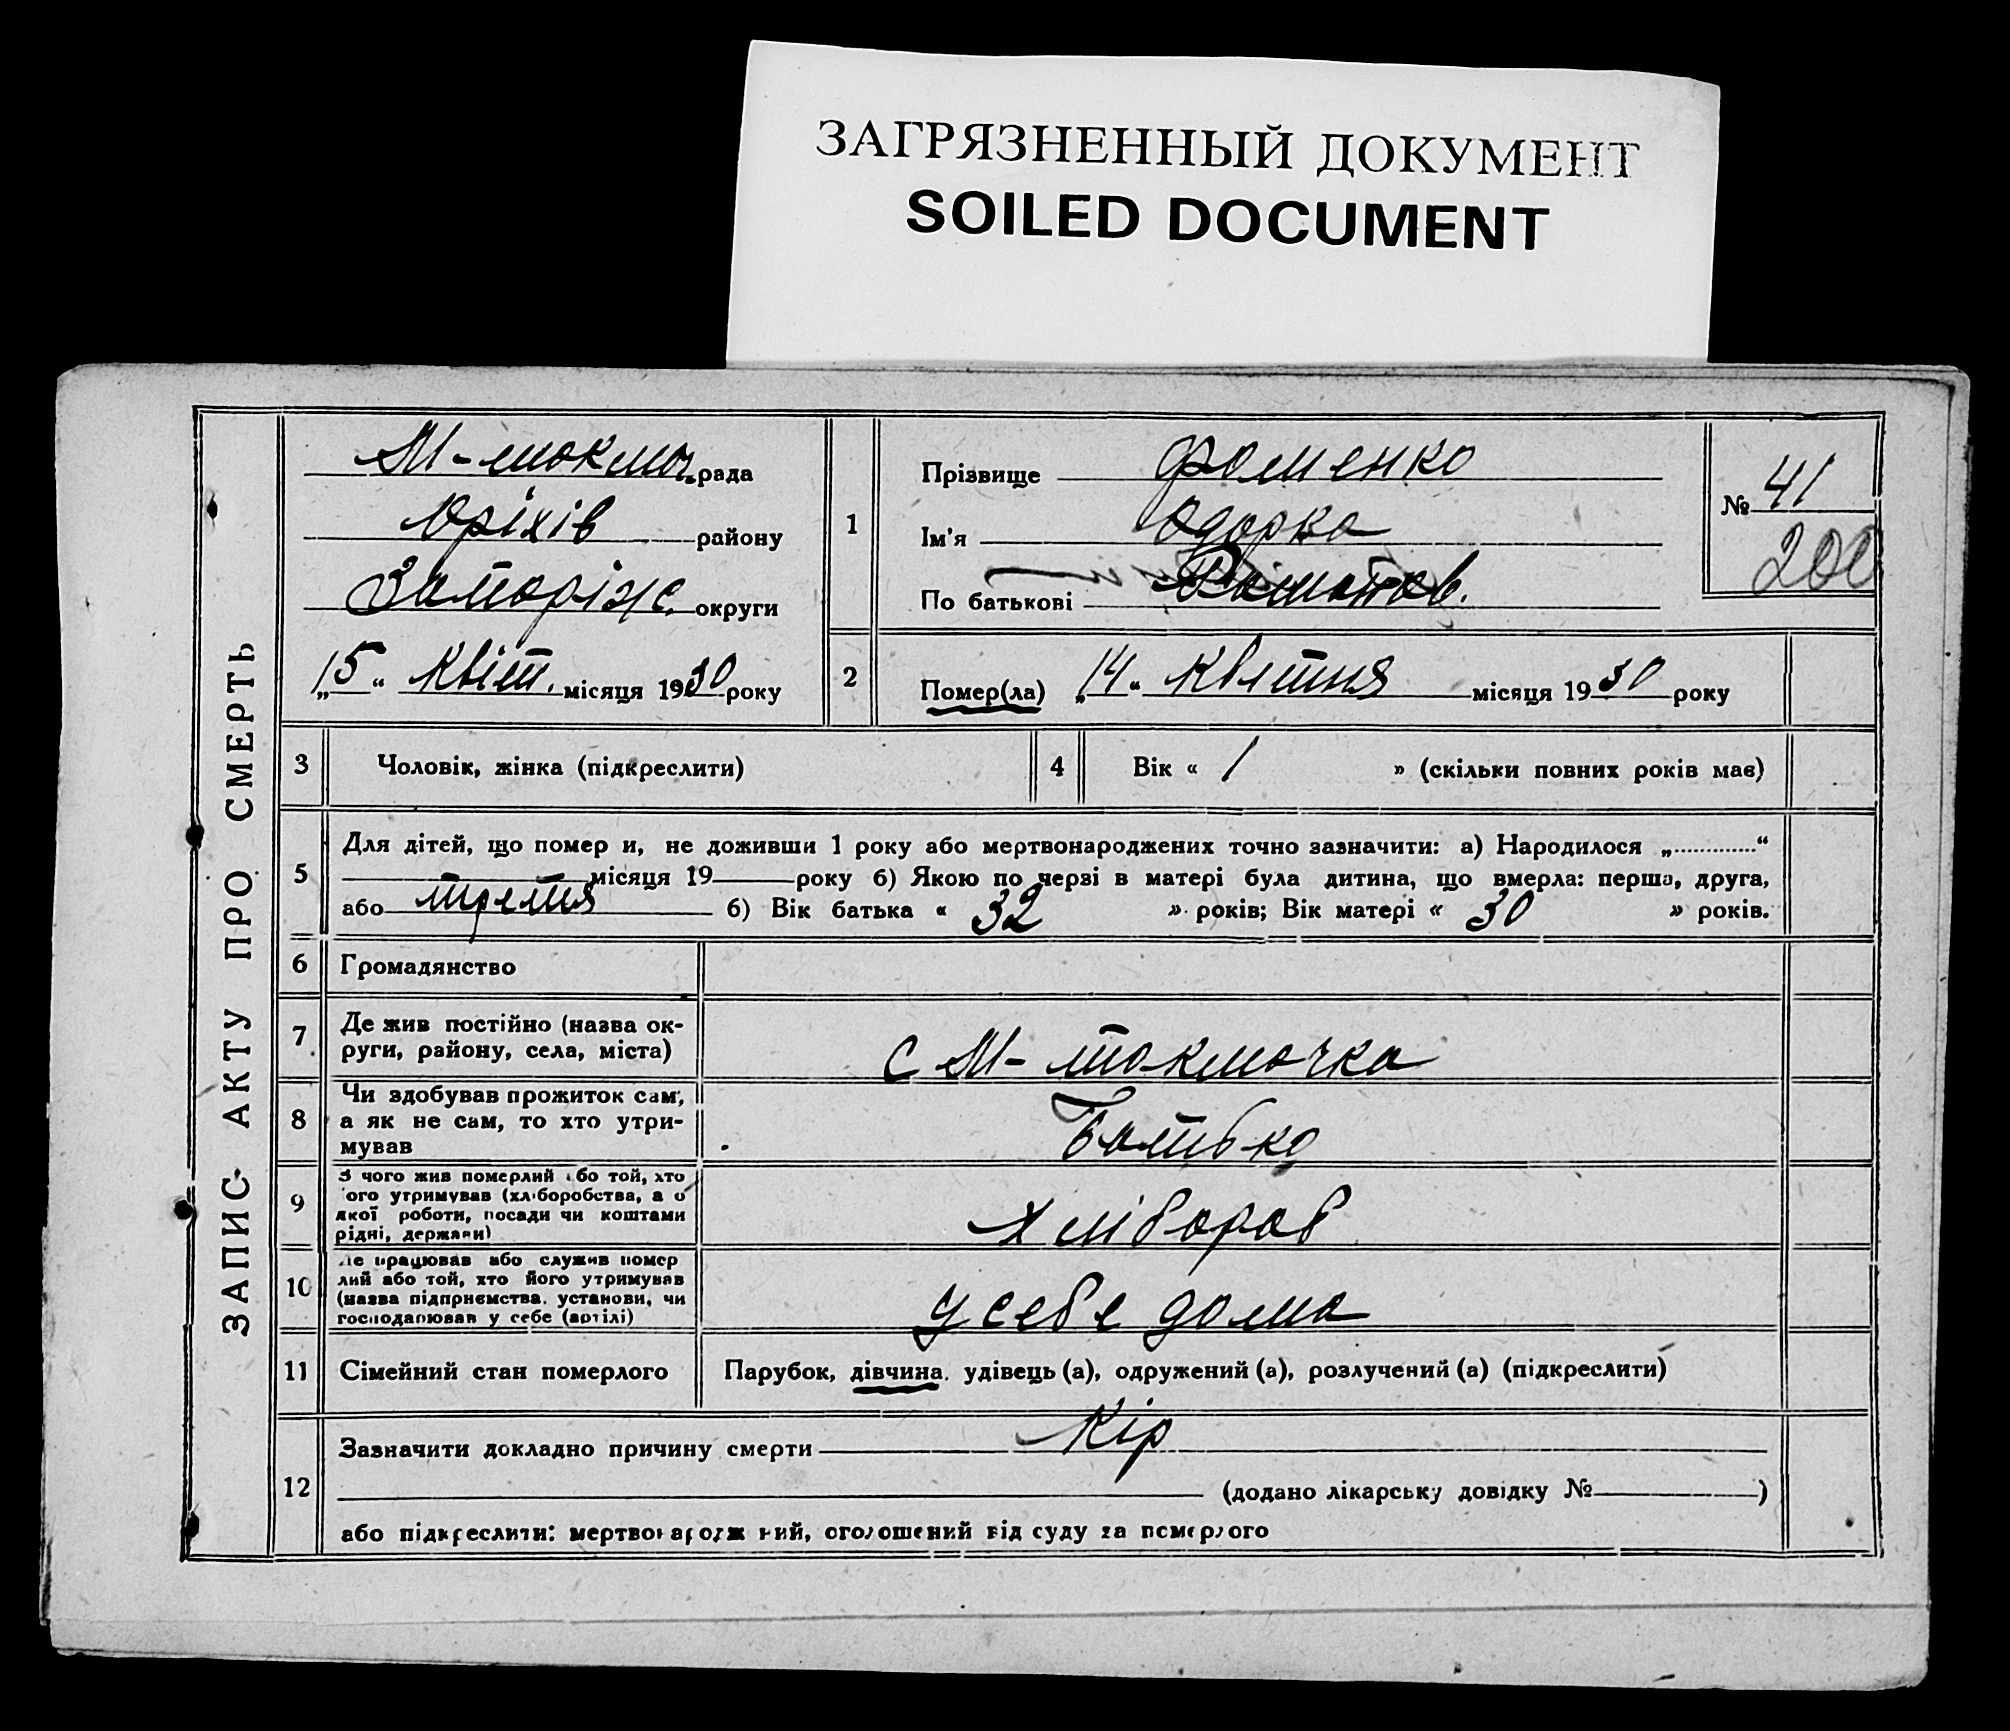 ЗАГРЯЗНЕННЫЙ ДОКУМЕНТ
SOILED DOCUMENT
ЗАПИС АКТУ ПРО СМЕРТЬ
М-токмач. рада
Оріхів району
Запоріж. округи
„15“ Квіт. місяця 1930 року
1
Прізвище Фоменко
Ім'я Одарка
По батькові
№ 41
200
2
Помер(ла) „14“ Квітня місяця 1930 року
3 Чоловік, жінка (підкреслити)
4 Вік « 1 » (скільки повних років має)
5
Для дітей, що помер и, не доживши 1 року або мертвонароджених точно зазначити: а) Народилося „.............“
місяця 19 року б) Якою по черзі в матері була дитина, що вмерла: перша, друга,
або третя б) Вік батька « 32 » років; Вік матері « 30 » років.
6 Громадянство
7 Де жив постійно (назва ок-
руги, району, села, міста)
с М-токмачка
8
Чи здобував прожиток сам,
а як не сам, то хто утри-
мував
Батько
9
З чого жив померлий або той, хто
ого утримував (хліборобства, а о
якої роботи, посади чи коштами
рідні, держави)
Хлібороб
10
Де працював або служив помер
лий або той, хто його утримував
(назва підприємства, установи, чи
господарював у себе (артілі)
у себе дома
11 Сімейний стан померлого
Парубок, дівчина, удівець (а), одружений (а), розлучений (а) (підкреслити)
12
Зазначити докладно причину смерти Кір
(додано лікарську довідку № )
або підкреслити: мертвонароджений, оголошений від суду за померлого